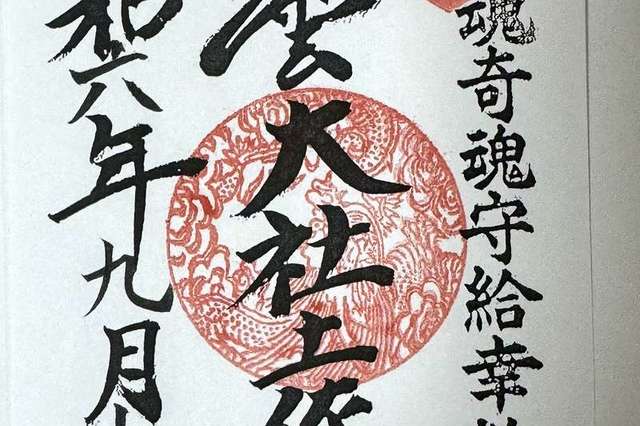 魂奇魂守給幸
雲大社上
和六年九月